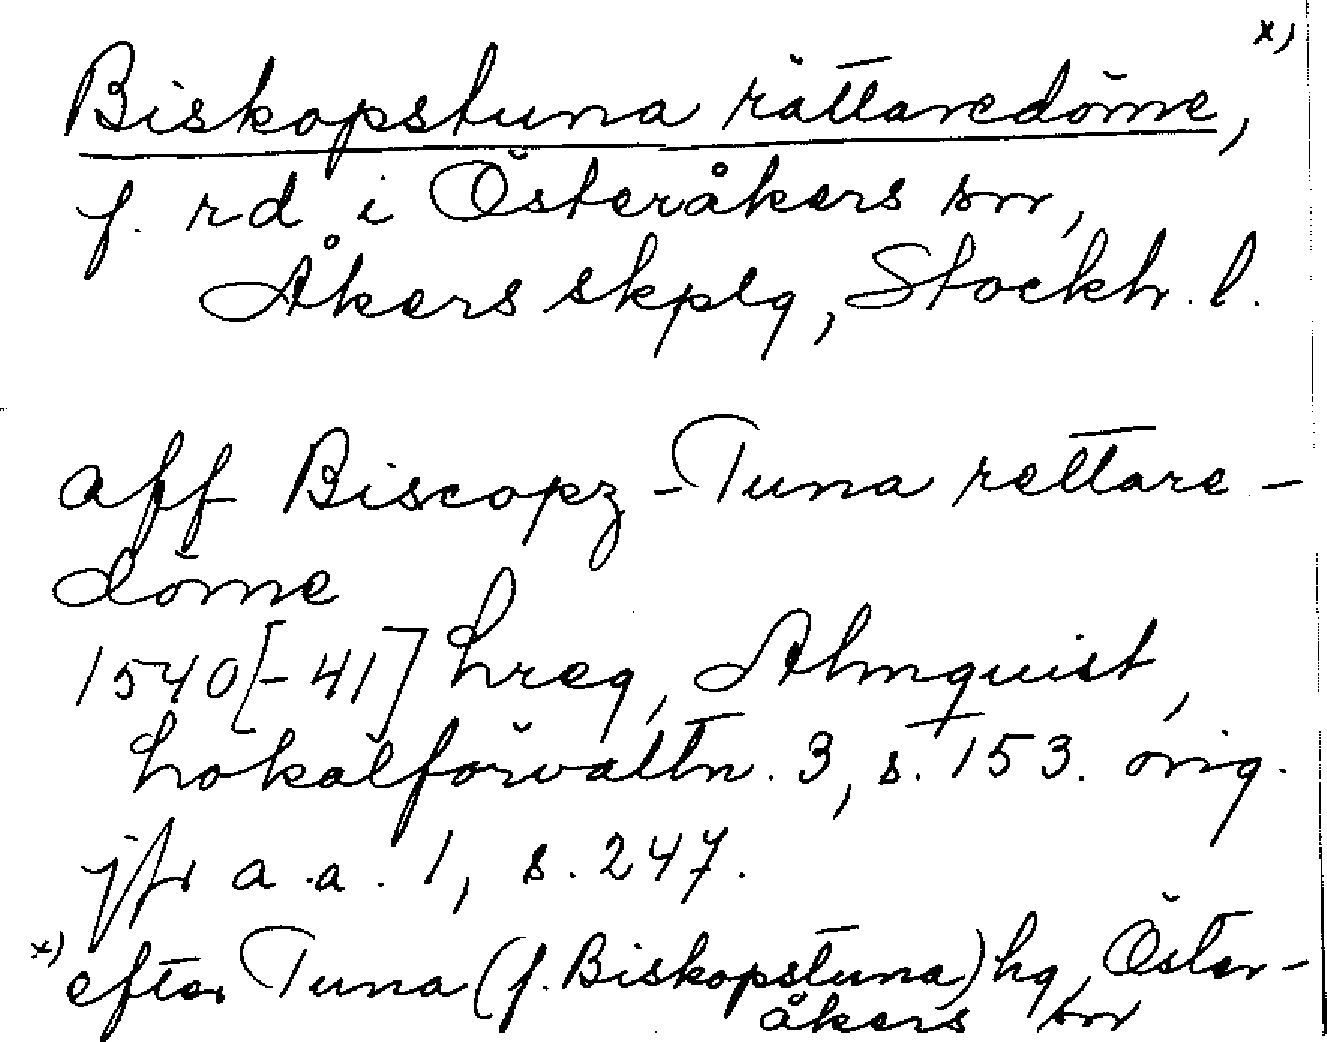 Biskopstuna rättaredöme, x)
f. rd i Österåkers sn,
Åkers skplg, Stockh. l.
aff Biscopz-Tuna rettare-
döme
1540[-41] hreg, Almquist,
Lokalförvaltn. 3, s. 153. orig.
jfr a.a. 1, s. 247.
x) efter Tuna (f. Biskopstuna) hg, Öster-
åkers sn